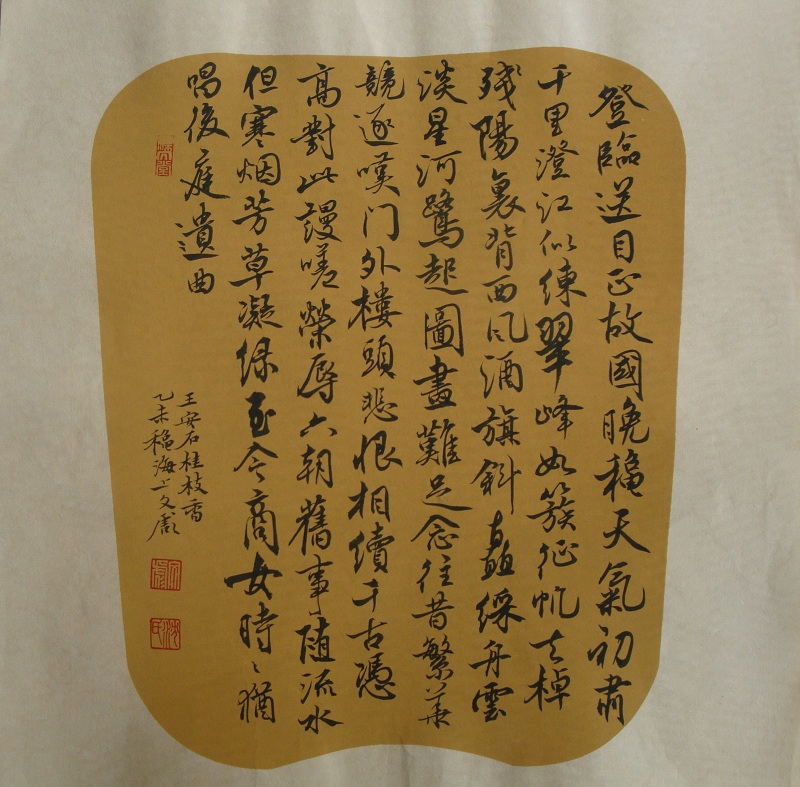 登臨送目正故國晚穐天氣初肅
千里澄江似練翠峰如簇征帆去棹
殘陽裏背西风酒旗斜矗綵舟雲
淡星河鷺起圖畫難足念往昔繁華
競逐嘆门外樓頭悲恨相續千古憑
高對此謾嗟榮辱六朝舊事随流水
但寒烟芳草凝绿至今商女時〻猶
唱後庭遺曲
王安石桂枝香
乙未穐海上文彪